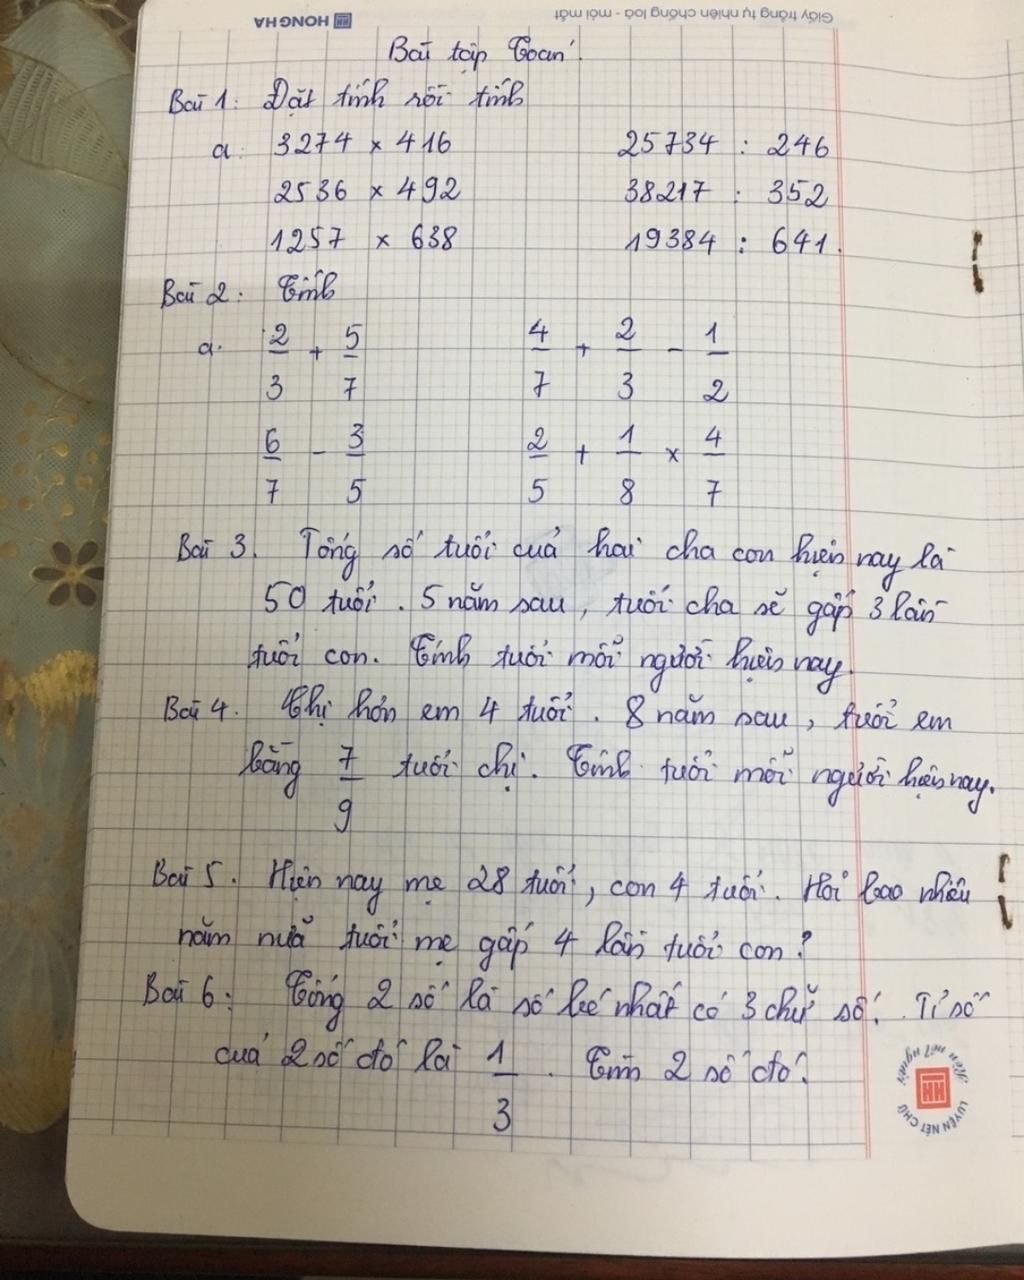 HONG HA
Giấy trắng tự nhiên chống loá - mỏi mắt
Bài tập Toán
Bài 1: Đặt tính rồi tính
a. 3274 x 416 25734 : 246
2536 x 492 38217 : 352
1257 x 638 19384 : 641.
Bài 2: Tính
a. 2/3 + 5/7 4/7 + 2/3 - 1/2
6/7 - 3/5 2/5 + 1/8 x 4/7
Bài 3. Tổng số tuổi của hai cha con hiện nay là
50 tuổi. 5 năm sau, tuổi cha sẽ gấp 3 lần
tuổi con. Tính tuổi mỗi người hiện nay.
Bài 4. Chị hơn em 4 tuổi. 8 năm sau, tuổi em
bằng 7/9 tuổi chị. Tính tuổi mỗi người hiện nay.
Bài 5. Hiện nay mẹ 28 tuổi, con 4 tuổi. Hỏi bao nhiêu
năm nữa tuổi mẹ gấp 4 lần tuổi con?
Bài 6: Tổng 2 số là số bé nhất có 3 chữ số. Tỉ số
của 2 số đó là 1/3. Tìm 2 số đó.
LUYỆN NÉT CHỮ
Rèn nết người